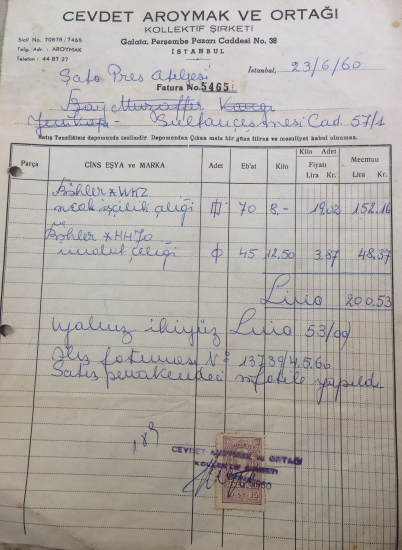 CEVDET AROYMAK VE ORTAĞI
KOLLEKTİF ŞİRKETİ
Galata, Perşembe Pazarı Caddesi No. 38
İSTANBUL
Sicil No. 70878/7465
Telg. Adr. : AROYMAK
Telefon : 44 87 27
İstanbul, 23/6/60
Şato Pres Atelyesi
Fatura No. 5465
Bay Muzaffer
Bultançeşmesi Cad. 57/1
Satış Tenzilâtsız depomunda teslimdir. Depomundan Çıkan mala bir güna itiraz ve mesuliyet kabul olunmaz.
Parça CİNS EŞYA ve MARKA Adet Eb'at Kilo Kilo Adet Fiyatı Lira Kr. Mecmuu Lira Kr.
Böhler *WKZ
sıcak işçilik çeliği 70 8.- 19.02 152.16
Böhler *HH70
imalat çeliği 45 12.50 3.87 48.37
Lira 200.53
Yalnız ikiyüz Lira 53/00
Alış faturası No 13739/4.5.60
Satış perakendeci
yapıldı
CEVDET AROYMAK VE ORTAĞI
KOLLEKTİF ŞİRKETİ